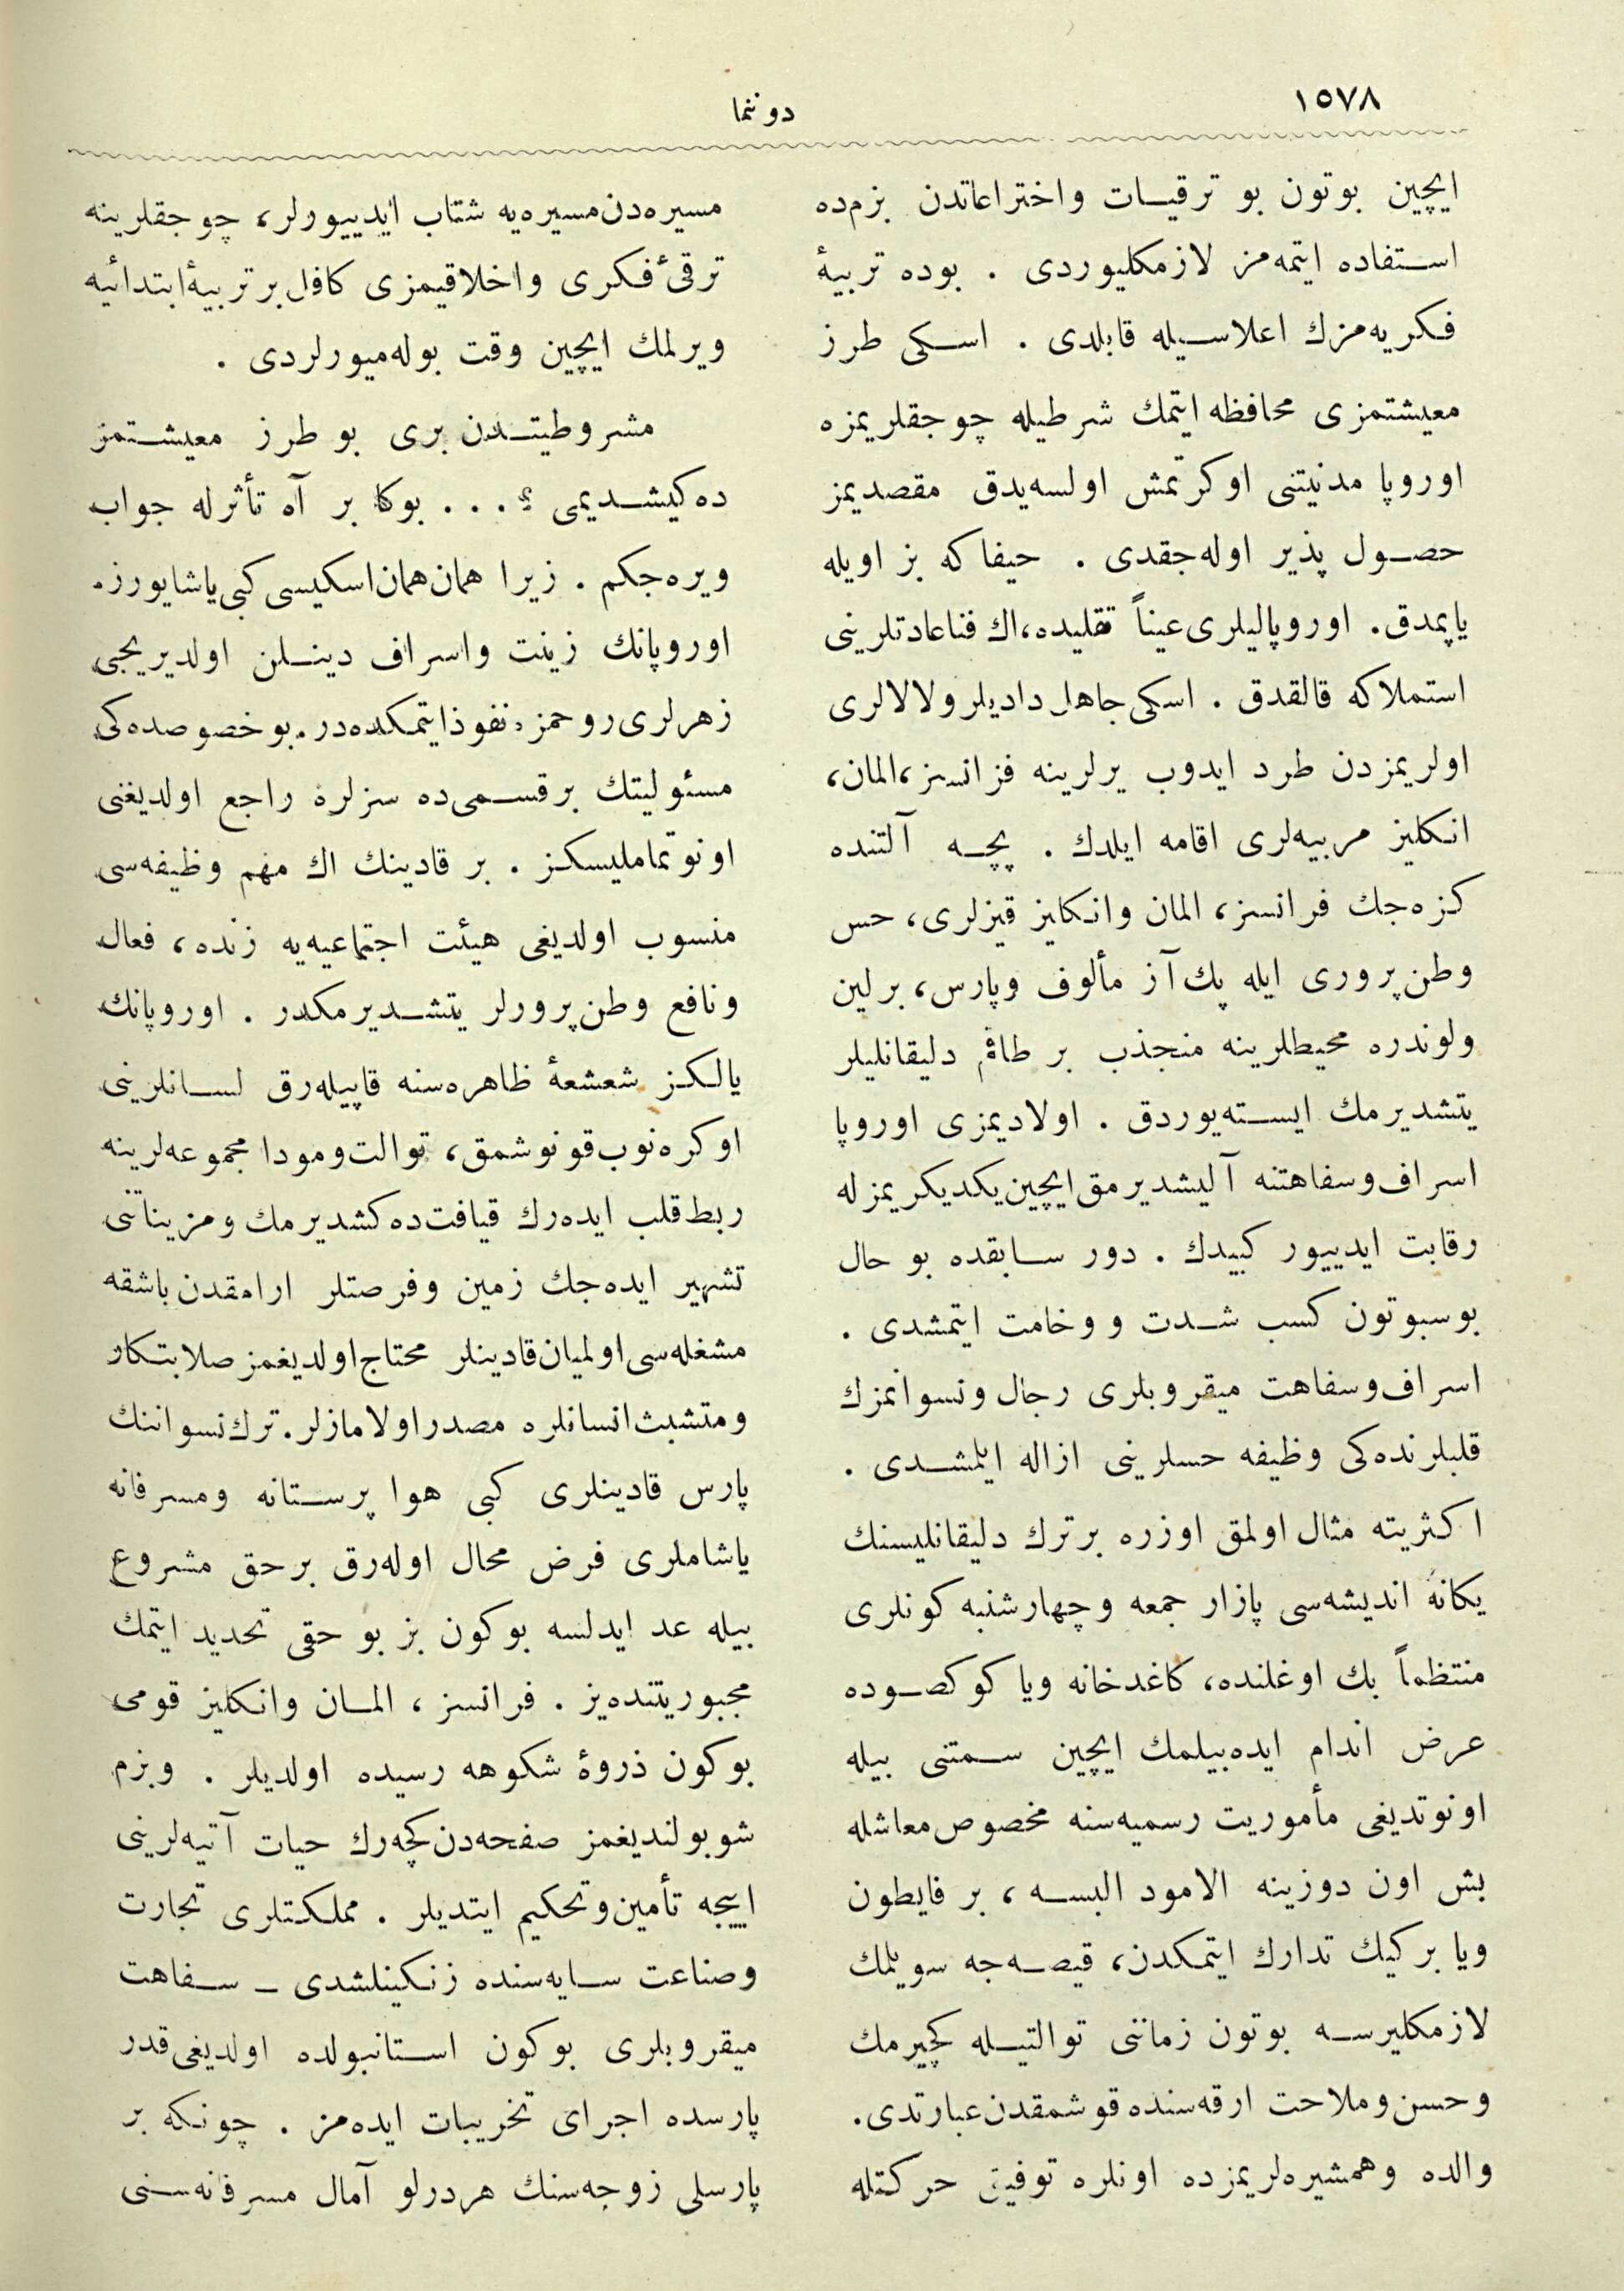 ١٥٧٨
دوننما
ايچين بوتون بو ترقيات واختراعاتدن بزم‌ده
استفاده ايتمه‌مز لازمكليوردى . بوده تربيۀ
فكريه‌مزك اعلاسيله قابلدى . اسكى طرز
معيشتمزى محافظه ايتمك شرطيله چوجقلريمزه
اوروپا مدنيتنى اوكرتمش اولسه‌يدق مقصديمز
حصول پذير اوله‌جقدى . حيفا كه بز اويله
ياپمدق. اوروپاليلرى عيناً تقليده، اك فنا عادتلرينى
استملاكه قالقدق . اسكى جاهل داديلر ولالالرى
اولريمزدن طرد ايدوب يرلرينه فرانسز، المان،
انكليز مربيه‌لرى اقامه ايلدك . پچه آلتنده
كزه‌جك فرانسز، المان وانكليز قيزلرى، حس
وطن‌پرورى ايله پك آز مألوف وپارس، برلين
ولوندره محيطلرينه منجذب بر طاقم دليقانليلر
يتشديرمك ايسته‌يوردق . اولاديمزى اوروپا
اسراف وسفاهتنه آليشديرمق ايچين يكديكريمزله
رقابت ايدييور كبيدك . دور سابقده بو حال
بوسبوتون كسب شدت و وخامت ايتمشدى .
اسراف وسفاهت ميقروبلرى رجال ونسوانمزك
قلبلرنده‌كى وظيفه حسلرينى ازاله ايلمشدى .
اكثريته مثال اولمق اوزره بر ترك دليقانليسنك
يكانه انديشه‌سى پازار جمعه وچهارشنبه كونلرى
منتظماً بك اوغلنده، كاغدخانه ويا كوكصوده
عرض اندام ايده‌بيلمك ايچين سمتنى بيله
اونوتديغى مأموريت رسميه‌سنه مخصوص معاشله
بش اون دوزينه الامود البسه ، بر فايطون
ويا بر كيك تدارك ايتمكدن، قيصه‌جه سويلمك
لازمكليرسه بوتون زماننى توالتيله كچيرمك
وحسن وملاحت ارقه‌سنده قوشمقدن عبارتدى.
والده وهمشيره‌لريمزده اونلره توفيق حركتله
مسيره‌دن مسيره‌يه شتاب ايدييورلر، چوجقلرينه
ترقئ فكرى واخلاقيمزى كافل بر تربيۀ ابتدائيه
ويرلمك ايچين وقت بوله‌ميورلردى .
مشروطيتدن برى بو طرز معيشتمز
ده‌كيشديمى ؟... بوكا بر آه تأثرله جواب
ويره‌جكم . زيرا همان همان اسكيسى كبى ياشايورز.
اوروپانك زينت واسراف دينلن اولديريجى
زهرلرى روحمزه نفوذ ايتمكده‌در. بو خصوصده‌كى
مسئوليتك بر قسمى ده سزلره راجع اولديغنى
اونوتمامليسكز . بر قادينك اك مهم وظيفه‌سى
منسوب اولديغى هيئت اجتماعيه‌يه زنده، فعال
ونافع وطن‌پرورلر يتشديرمكدر . اوروپانك
يالكز شعشعۀ ظاهره‌سنه قاپيله‌رق لسانلرينى
اوكره‌نوب قونوشمق، توالت ومودا مجموعه‌لرينه
ربط قلب ايده‌رك قيافت ده‌كشديرمك ومزيناتنى
تشهير ايده‌جك زمين وفرصتلر ارامقدن باشقه
مشغله‌سى اولميان قادينلر محتاج اولديغمز صلابتكار
ومتشبث انسانلره مصدر اولامازلر. ترك نسواننك
پارس قادينلرى كبى هوا پرستانه ومسرفانه
ياشاملرى فرض محال اوله‌رق بر حق مشروع
بيله عد ايدلسه بوكون بز بو حقى تحديد ايتمك
مجبوريتنده‌يز . فرانسز ، المان وانكليز قومى
بوكون ذروۀ شكوهه رسيده اولديلر . وبزم
شو بولنديغمز صفحه‌دن كچه‌رك حيات آتيه‌لرينى
اييجه تأمين وتحكيم ايتديلر . مملكتلرى تجارت
وصناعت سايه‌سنده زنكينلشدى ــ سفاهت
ميقروبلرى بوكون استانبولده اولديغى قدر
پارسده اجراى تخريبات ايده‌مز . چونكه بر
پارسلى زوجه‌سنك هر درلو آمال مسرفانه‌سنى